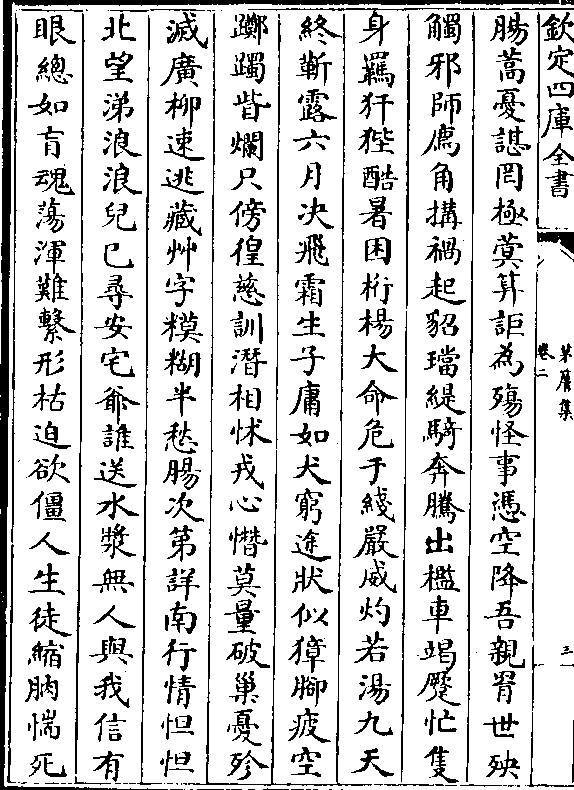 欽定四庫全書
茅簷集
卷二
三
腸蒿憂諶罔極蓂算詎為殤怪事憑空降吾親罥世殃
觸邪師廌角搆禍起貂璫緹騎奔騰出檻車竭蹷忙隻
身羈犴狴酷暑困桁楊大命危于綫嚴威灼若湯九天
終靳露六月决飛霜生子庸如犬窮途狀似獐腳疲空
躑躅眥爛只傍徨慈訓潛相怵戎心憯莫量破巢憂殄
滅廣柳速逃藏艸字糢糊半愁腸次第詳南行情怛怛
北望涕浪浪兒已尋安宅爺誰送水漿無人與我信有
眼總如盲魂蕩渾難繫形枯迫欲僵人生徒縮朒惴死